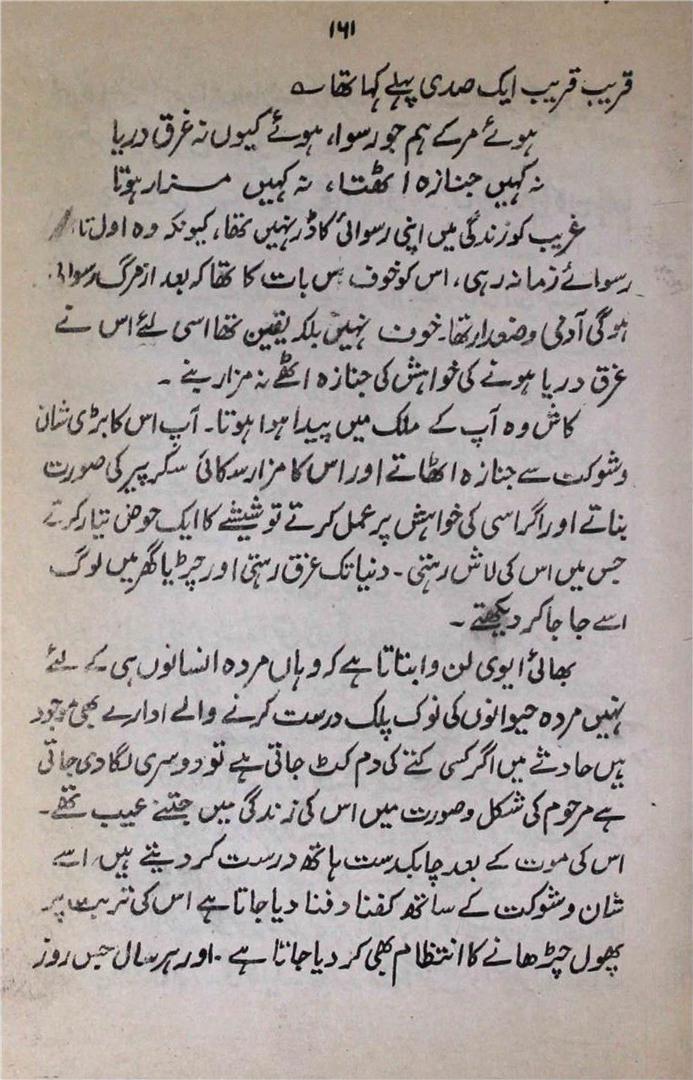 ۱۶۱
قریب قریب ایک صدی پہلے کہا تھا ؎
ہوئے مر کے ہم جو رسوا، ہوئے کیوں نہ غرق دریا
نہ کہیں جنازہ اٹھتا، نہ کہیں مزار ہوتا
غریب کو زندگی میں اپنی رسوائی کا ڈر نہیں تھا، کیونکہ وہ اول تا
رسوائے زمانہ رہی، اس کو خوف اس بات کا تھا کہ بعد از مرگ رسوائی
ہوگی آدمی وضعدار تھا۔ خوف نہیں بلکہ یقین تھا اسی لئے اس نے
غرق دریا ہونے کی خواہش کی جنازہ اٹھے نہ مزار بنے ۔
کاش وہ آپ کے ملک میں پیدا ہوا ہوتا۔ آپ اس کا بڑی شان
و شوکت سے جنازہ اٹھاتے اور اس کا مزار سکائی سکریپر کی صورت
بناتے اور اگر اسی کی خواہش پر عمل کرتے تو شیشے کا ایک حوض تیار کرتے
جس میں اس کی لاش رہتی ۔ دنیا تک غرق رہتی اور چڑیا گھر میں لوگ
اسے جا جا کر دیکھتے ۔
بھائی ایوی لن وا بتاتا ہے کہ وہاں مردہ انسانوں ہی کے لئے
نہیں مردہ حیوانوں کی نوک پلک درست کرنے والے ادارے بھی موجود
ہیں حادثے میں اگر کسی کتے کی دم کٹ جاتی ہے تو دوسری لگا دی جاتی
ہے مرحوم کی شکل و صورت میں اس کی زندگی میں جتنے عیب تھے۔
اس کی موت کے بعد چابکدست ہاتھ درست کر دیتے ہیں، اسے
شان و شوکت کے ساتھ کفنا دفنا دیا جاتا ہے اس کی تربت پر
پھول چڑھانے کا انتظام بھی کر دیا جاتا ہے ۔ اور ہر سال جس روز